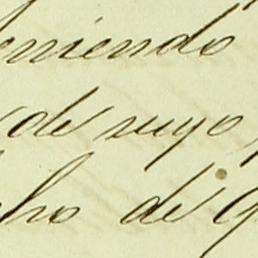 eniendo
de suyo,
cho de q